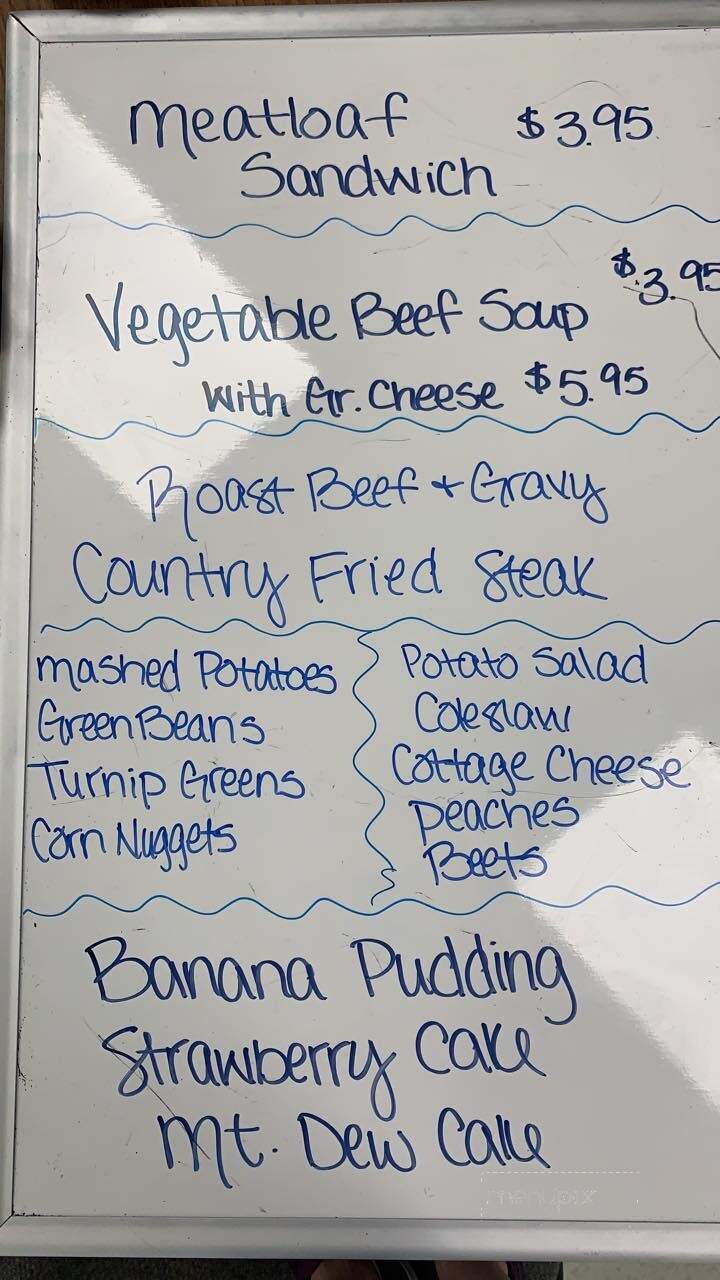 Meatloaf $3.95
Sandwich
$3.95
Vegetable Beef Soup
with Gr. Cheese $5.95
Roast Beef + Gravy
Country Fried Steak
Mashed Potatoes
Green Beans
Turnip Greens
Corn Nuggets
Potato Salad
Coleslaw
Cottage Cheese
Peaches
Beets
Banana Pudding
Strawberry Cake
Mt. Dew Cake
menupix